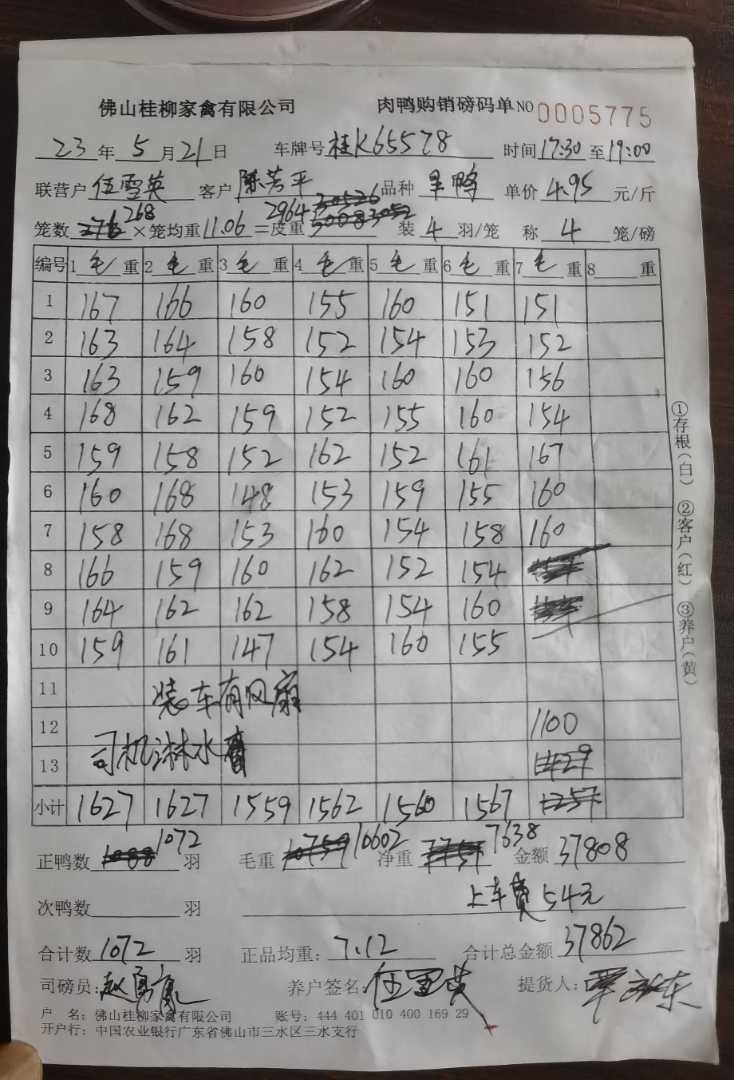 佛山桂柳家禽有限公司 肉鸭购销磅码单 NO 0005775
23年5月21日 车牌号桂K65578 时间17:30至19:00
联营户伍雪英 客户陈芳平 品种 鸭 单价4.95元/斤
笼数268×笼均重11.06=皮重2964 装4羽/笼 称4笼/磅
编号 1毛重 2毛重 3毛重 4毛重 5毛重 6毛重 7毛重 8 重
1 167 166 160 155 160 151 151
2 163 164 158 152 154 153 152
3 163 159 160 154 160 160 156
4 168 162 159 152 155 160 154
5 159 158 152 162 152 161 167
6 160 168 148 153 159 155 160
7 158 168 153 160 154 158 160
8 166 159 160 162 152 154
9 164 162 162 158 154 160
10 159 161 147 154 160 155
11 装车有风扇
12 1100
13 司机淋水
小计 1627 1627 1559 1562 1560 1567
正鸭数1072羽 毛重10602 净重7638 金额37808
次鸭数 羽 上车费54元
合计数1072羽 正品均重:7.12 合计总金额37862
司磅员:赵勇 养户签名:伍雪英 提货人:
户 名:佛山桂柳家禽有限公司 账号:444 401 010 400 169 29
开户行:中国农业银行广东省佛山市三水区三水支行
①存根(白) ②客户(红) ③养户(黄)